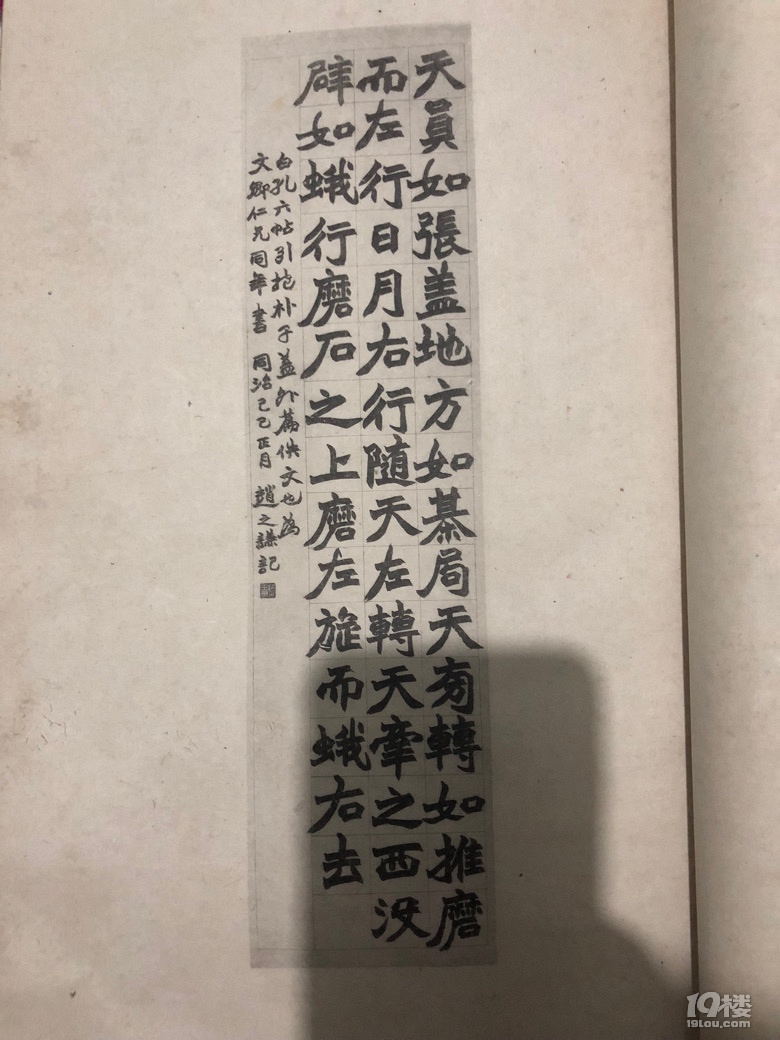 天員如張盖地方如棊局天㫄轉如推磨
而左行日月右行隨天左轉天牽之西没
辟如蛾行磨石之上磨左旋而蛾右去
白孔六帖引抱朴子葢外篇佚文也為
文卿仁兄同年書 同治己巳正月 趙之謙記
19楼
19lou.com